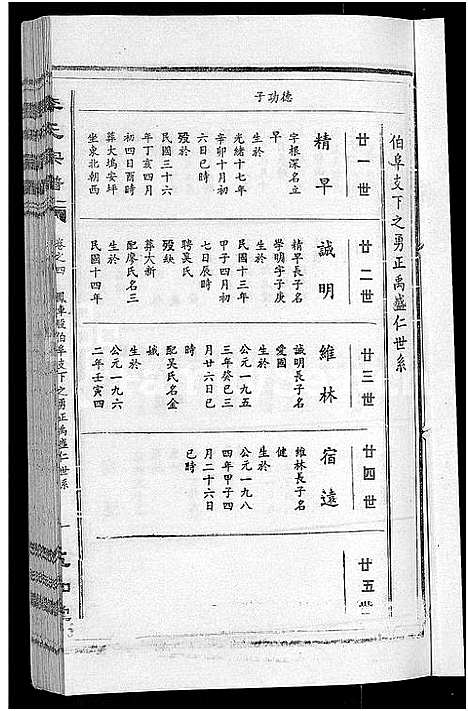 伯阜支下之勇正禹盛仁世系
廿一世
廿二世
廿三世
廿四世
廿五世
德功子
精早
字根深名立
早
生於
光緒十七年
辛卯十月初
六日巳時
歿於
民國三十六
年丁亥四月
初四日酉時
葬大塢安坪
坐東北朝西
誠明
精早長子名
學明字子庚
生於
民國十三年
甲子四月初
七日辰時
聘吳氏
歿缺
葬大新
配廖氏名三
生於
民國十四年
維林
誠明長子名
愛國
生於
公元一九五
三年癸巳三
月廿六日巳
時
配吴氏名金
娥
生於
公元一九六
二年壬寅四
宿遠
維林長子名
健
生於
公元一九八
四年甲子四
月二十六日
巳時
氏宗譜
卷之四
鳳車殷伯阜支下之勇正禹盛仁世系
一